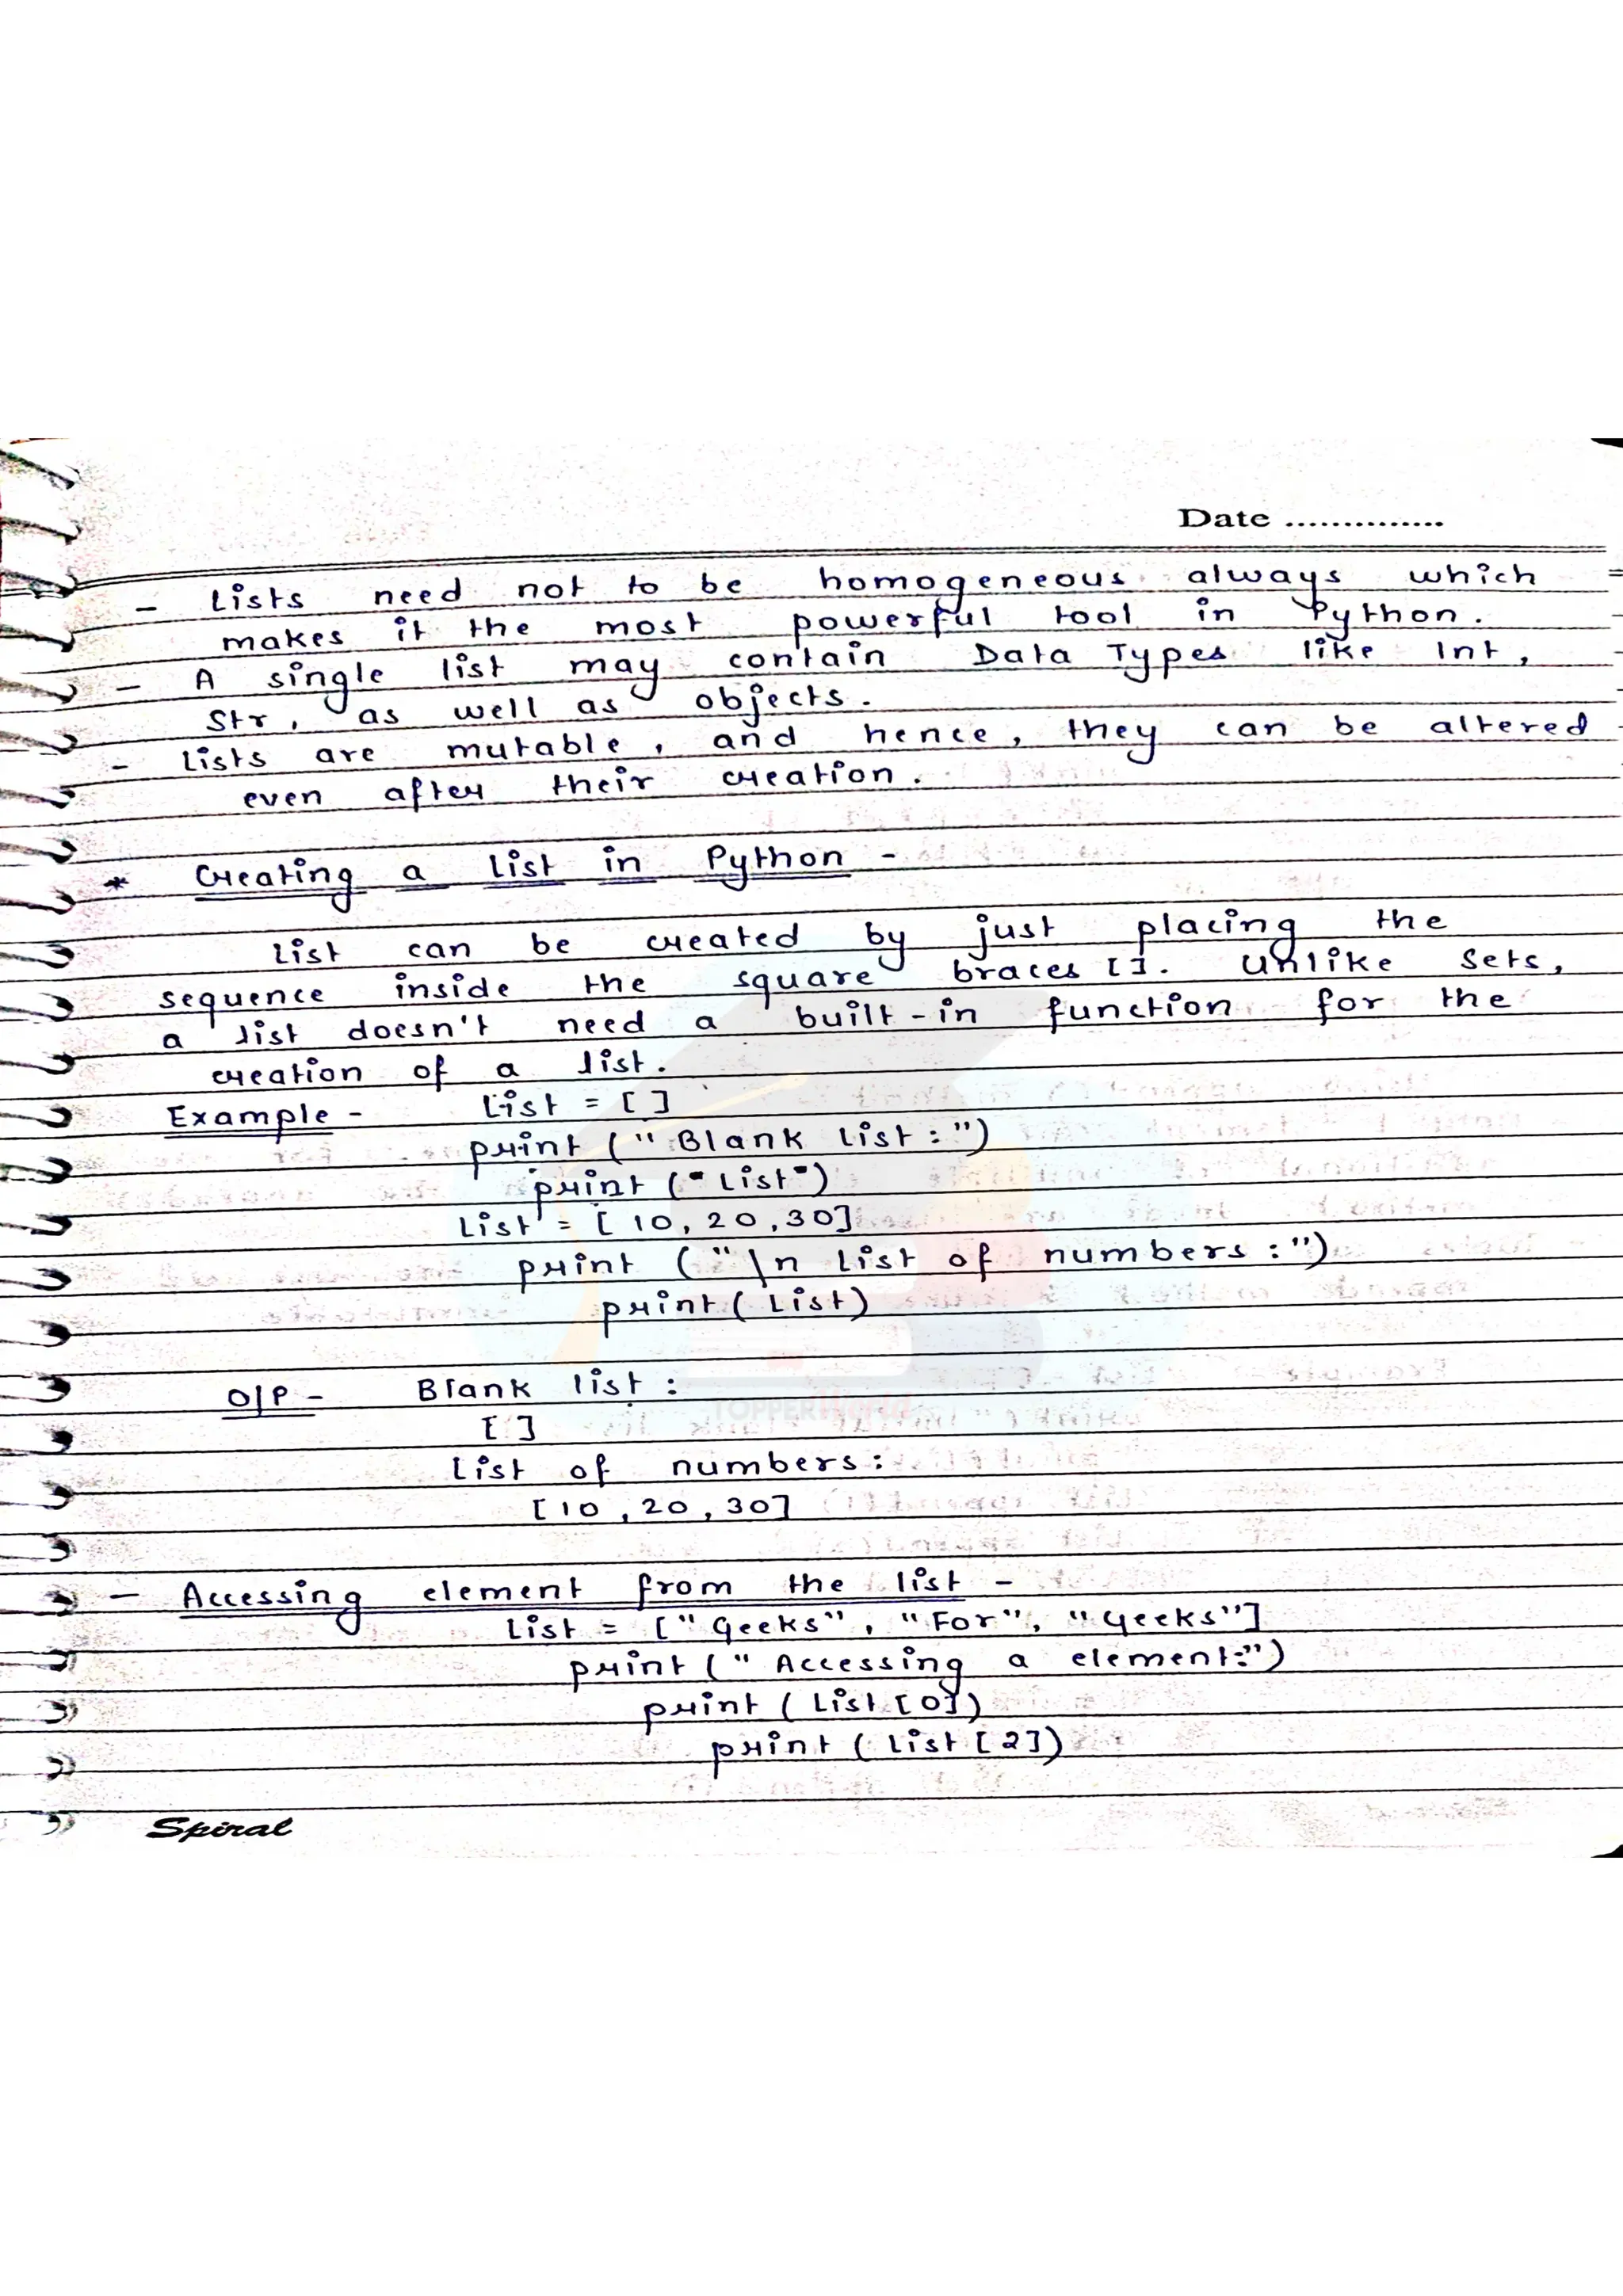 Date ..............
- Lists need not to be homogeneous always which
makes it the most powerful tool in Python.
- A single list may contain Data Types like Int,
Str, as well as objects.
- Lists are mutable, and hence, they can be altered
even after their creation.
* Creating a List in Python -
List can be created by just placing the
sequence inside the square braces []. Unlike Sets,
a list doesn't need a built-in function for the
creation of a list.
Example - List = [ ]
print (" Blank List : ")
print (" List ")
List = [ 10, 20, 30]
print (" \n List of numbers : ")
print ( List)
O/P - Blank list :
[ ]
List of numbers :
[ 10 , 20 , 30]
- Accessing element from the list -
List = [" Geeks" , "For", "Geeks"]
print (" Accessing a element:")
print ( List [0])
print ( List [ 2])
TOPPERWorld
Spiral